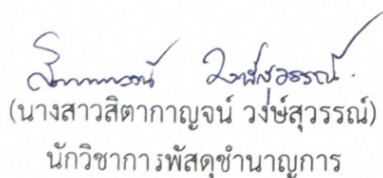 (นางสาวสิตากาญจน์ วงษ์สุวรรณ์)
นักวิชาการพัสดุชำนาญการ